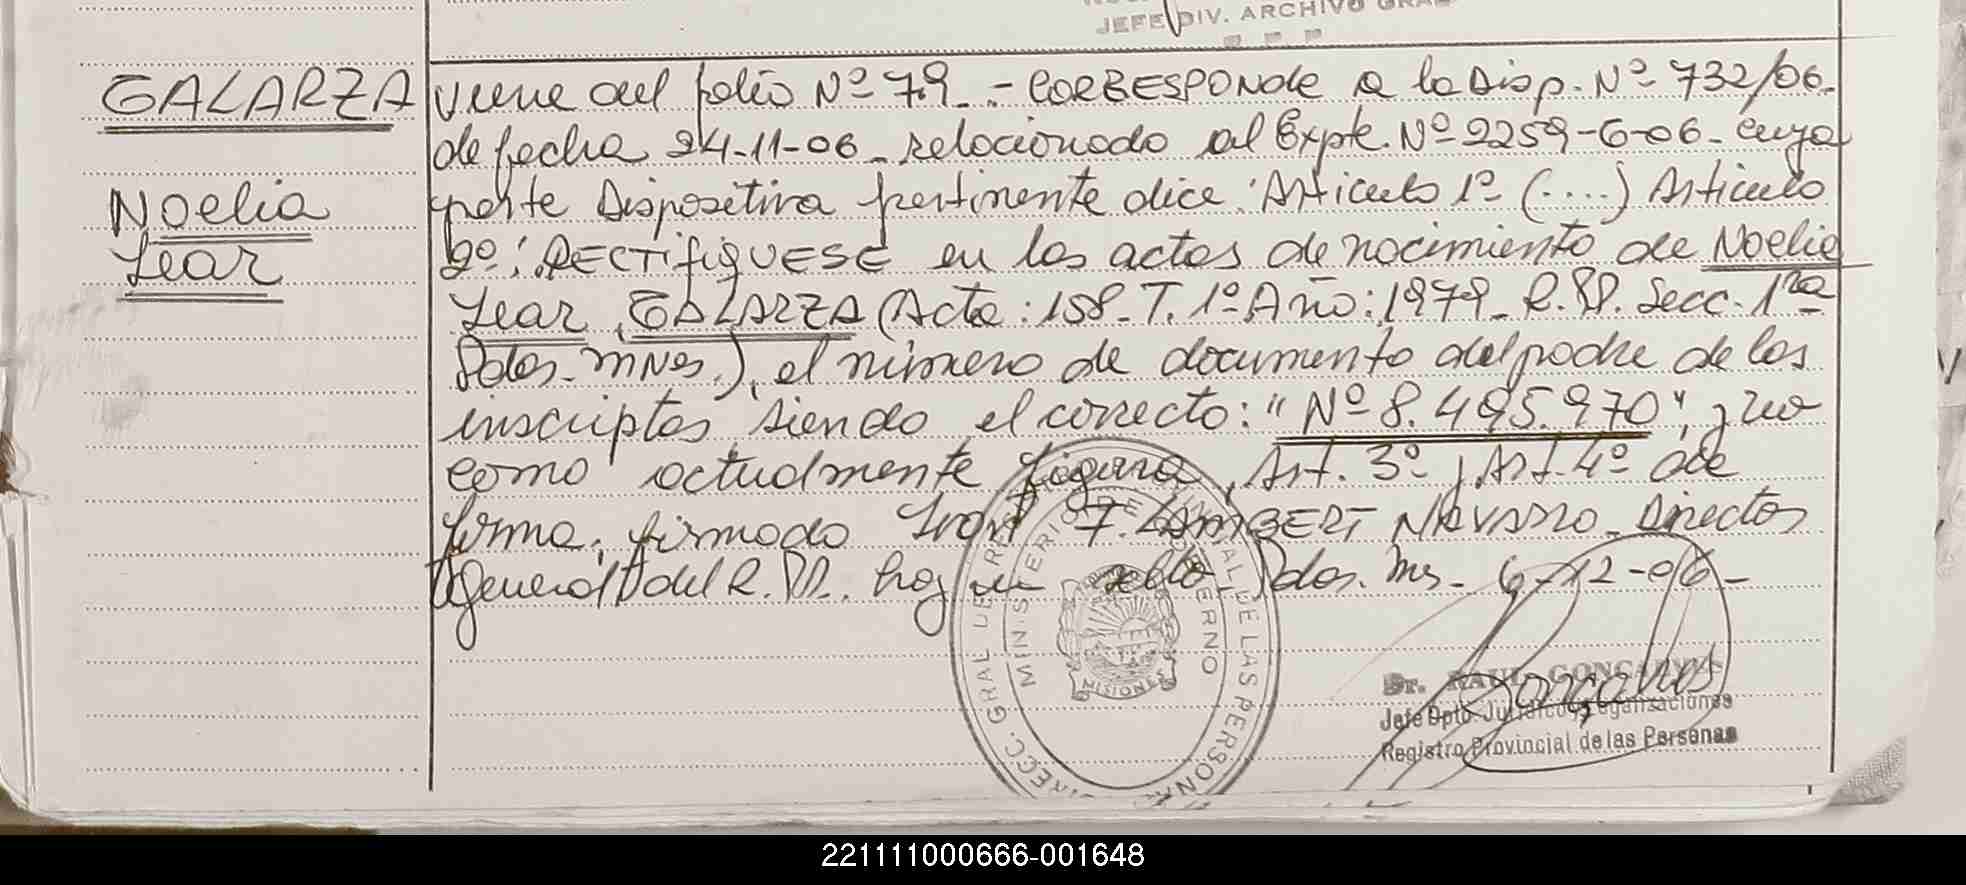 JEFE DIV. ARCHIVO GRAL
GALARZA
Noelia
Lear
viene del folio Nº 79_.- CORRESPONde a la Disp. Nº 732/06.
de fecha 24-11-06_ relacionado al Expte. Nº 2259-G-06- cuya
parte Dispositiva pertinente dice: Articulo 1º (....) Articulo
2º: RECTIFIQUESE en las actas de nacimiento de Noelia
Lear GALARZA (Acta: 158_T. 1º Año: 1979_ R.PP. Secc. 1ra
Pdas_mNes.), el número de documento del padre de los
inscriptos siendo el correcto: "Nº 8.495.970", y no
como actualmente figura, Art. 3º y Art. 4º de
forma, firmado T. LAMBERT NAVARRO_ Director
General del R.PP. hoy en sello Pdas. Mns_ 6-12-06_
DIRECC. GRAL DE REG PROVINCIAL DE LAS PERSONAS
MINISTERIO DE GOBIERNO
MISIONES
Dr. RAUL GONCALVES
Jefe Dpto. Jurídico y Legalizaciones
Registro Provincial de las Personas
221111000666-001648